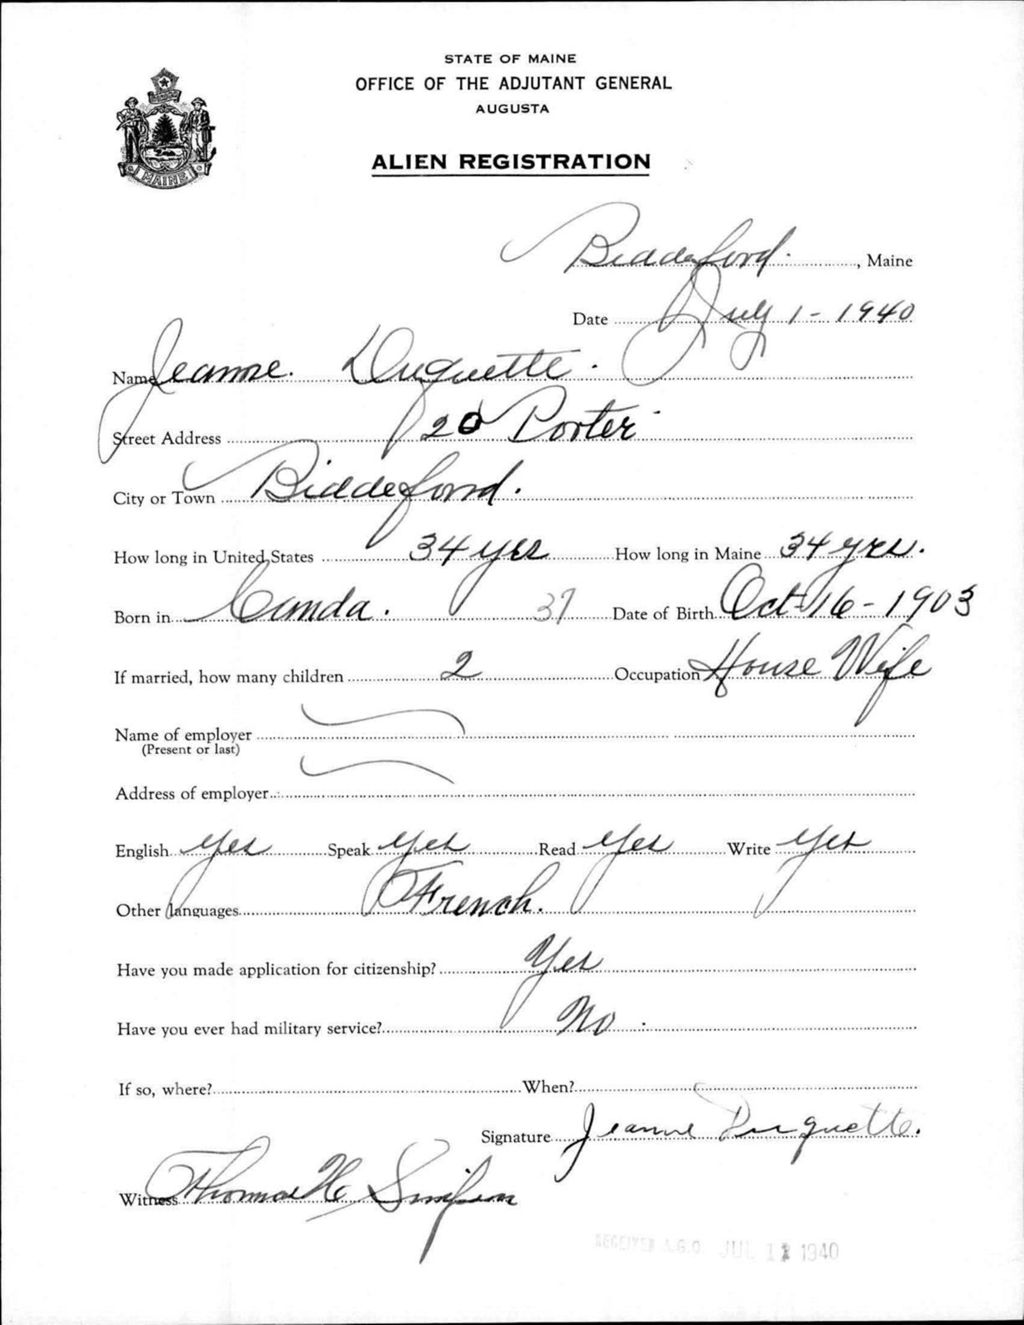 STATE OF MAINE
OFFICE OF THE ADJUTANT GENERAL
AUGUSTA
MAINE
ALIEN REGISTRATION
Biddeford, Maine
Date July 1 - 1940
Name Jeanne. Duquette.
Street Address 20 Porter
City or Town Biddeford.
How long in United States 34 yrs How long in Maine 34 yrs.
Born in Canda. 37 Date of Birth Oct-16-1903
If married, how many children 2 Occupation House Wife
Name of employer
(Present or last)
Address of employer
English Yes Speak Yes Read Yes Write Yes
Other languages French.
Have you made application for citizenship? Yes
Have you ever had military service? No
If so, where? When?
Signature Jeanne Duquette.
Witness Thomas H Simpson
RECEIVED A.G.O. JUL 1940